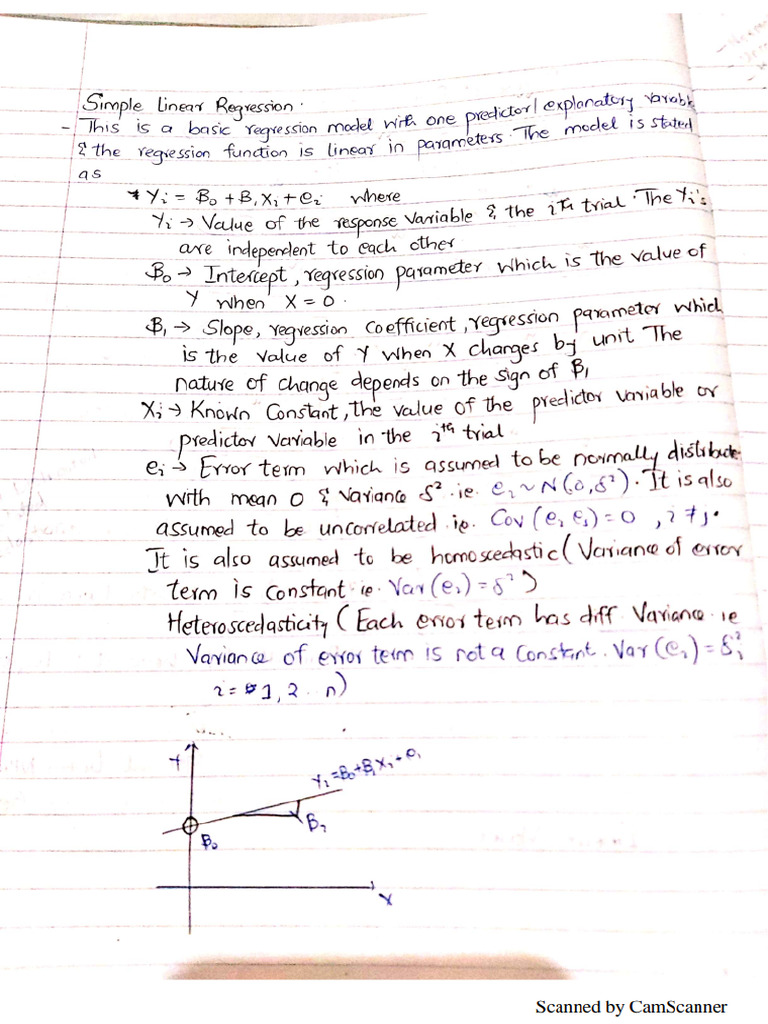 Simple Linear Regression.
- This is a basic regression model with one predictor/explanatory variable
& the regression function is linear in parameters. The model is stated
as
* Yi = B0 + B1Xi + ei where
Yi → Value of the response variable & the ith trial. The Yi's
are independent to each other
B0 → Intercept, regression parameter which is the value of
Y when X = 0.
B1 → Slope, regression coefficient, regression parameter which
is the value of Y when X changes by unit The
nature of change depends on the sign of B1
Xi → Known Constant, the value of the predictor variable or
predictor variable in the ith trial
ei → Error term which is assumed to be normally distribute
with mean 0 & variance δ² ie. ei ~ N(0, δ²). It is also
assumed to be uncorrelated ie. Cov(ei ej) = 0, i ≠ j.
It is also assumed to be homoscedastic (Variance of error
term is constant ie. Var(ei) = δ²)
Heteroscedasticity (Each error term has diff Variance ie
Variance of error term is not a constant. Var(ei) = δi²
i = 1, 2.. n)
Y
Yi = B0 + B1Xi + ei
B1
B0
X
Scanned by CamScanner